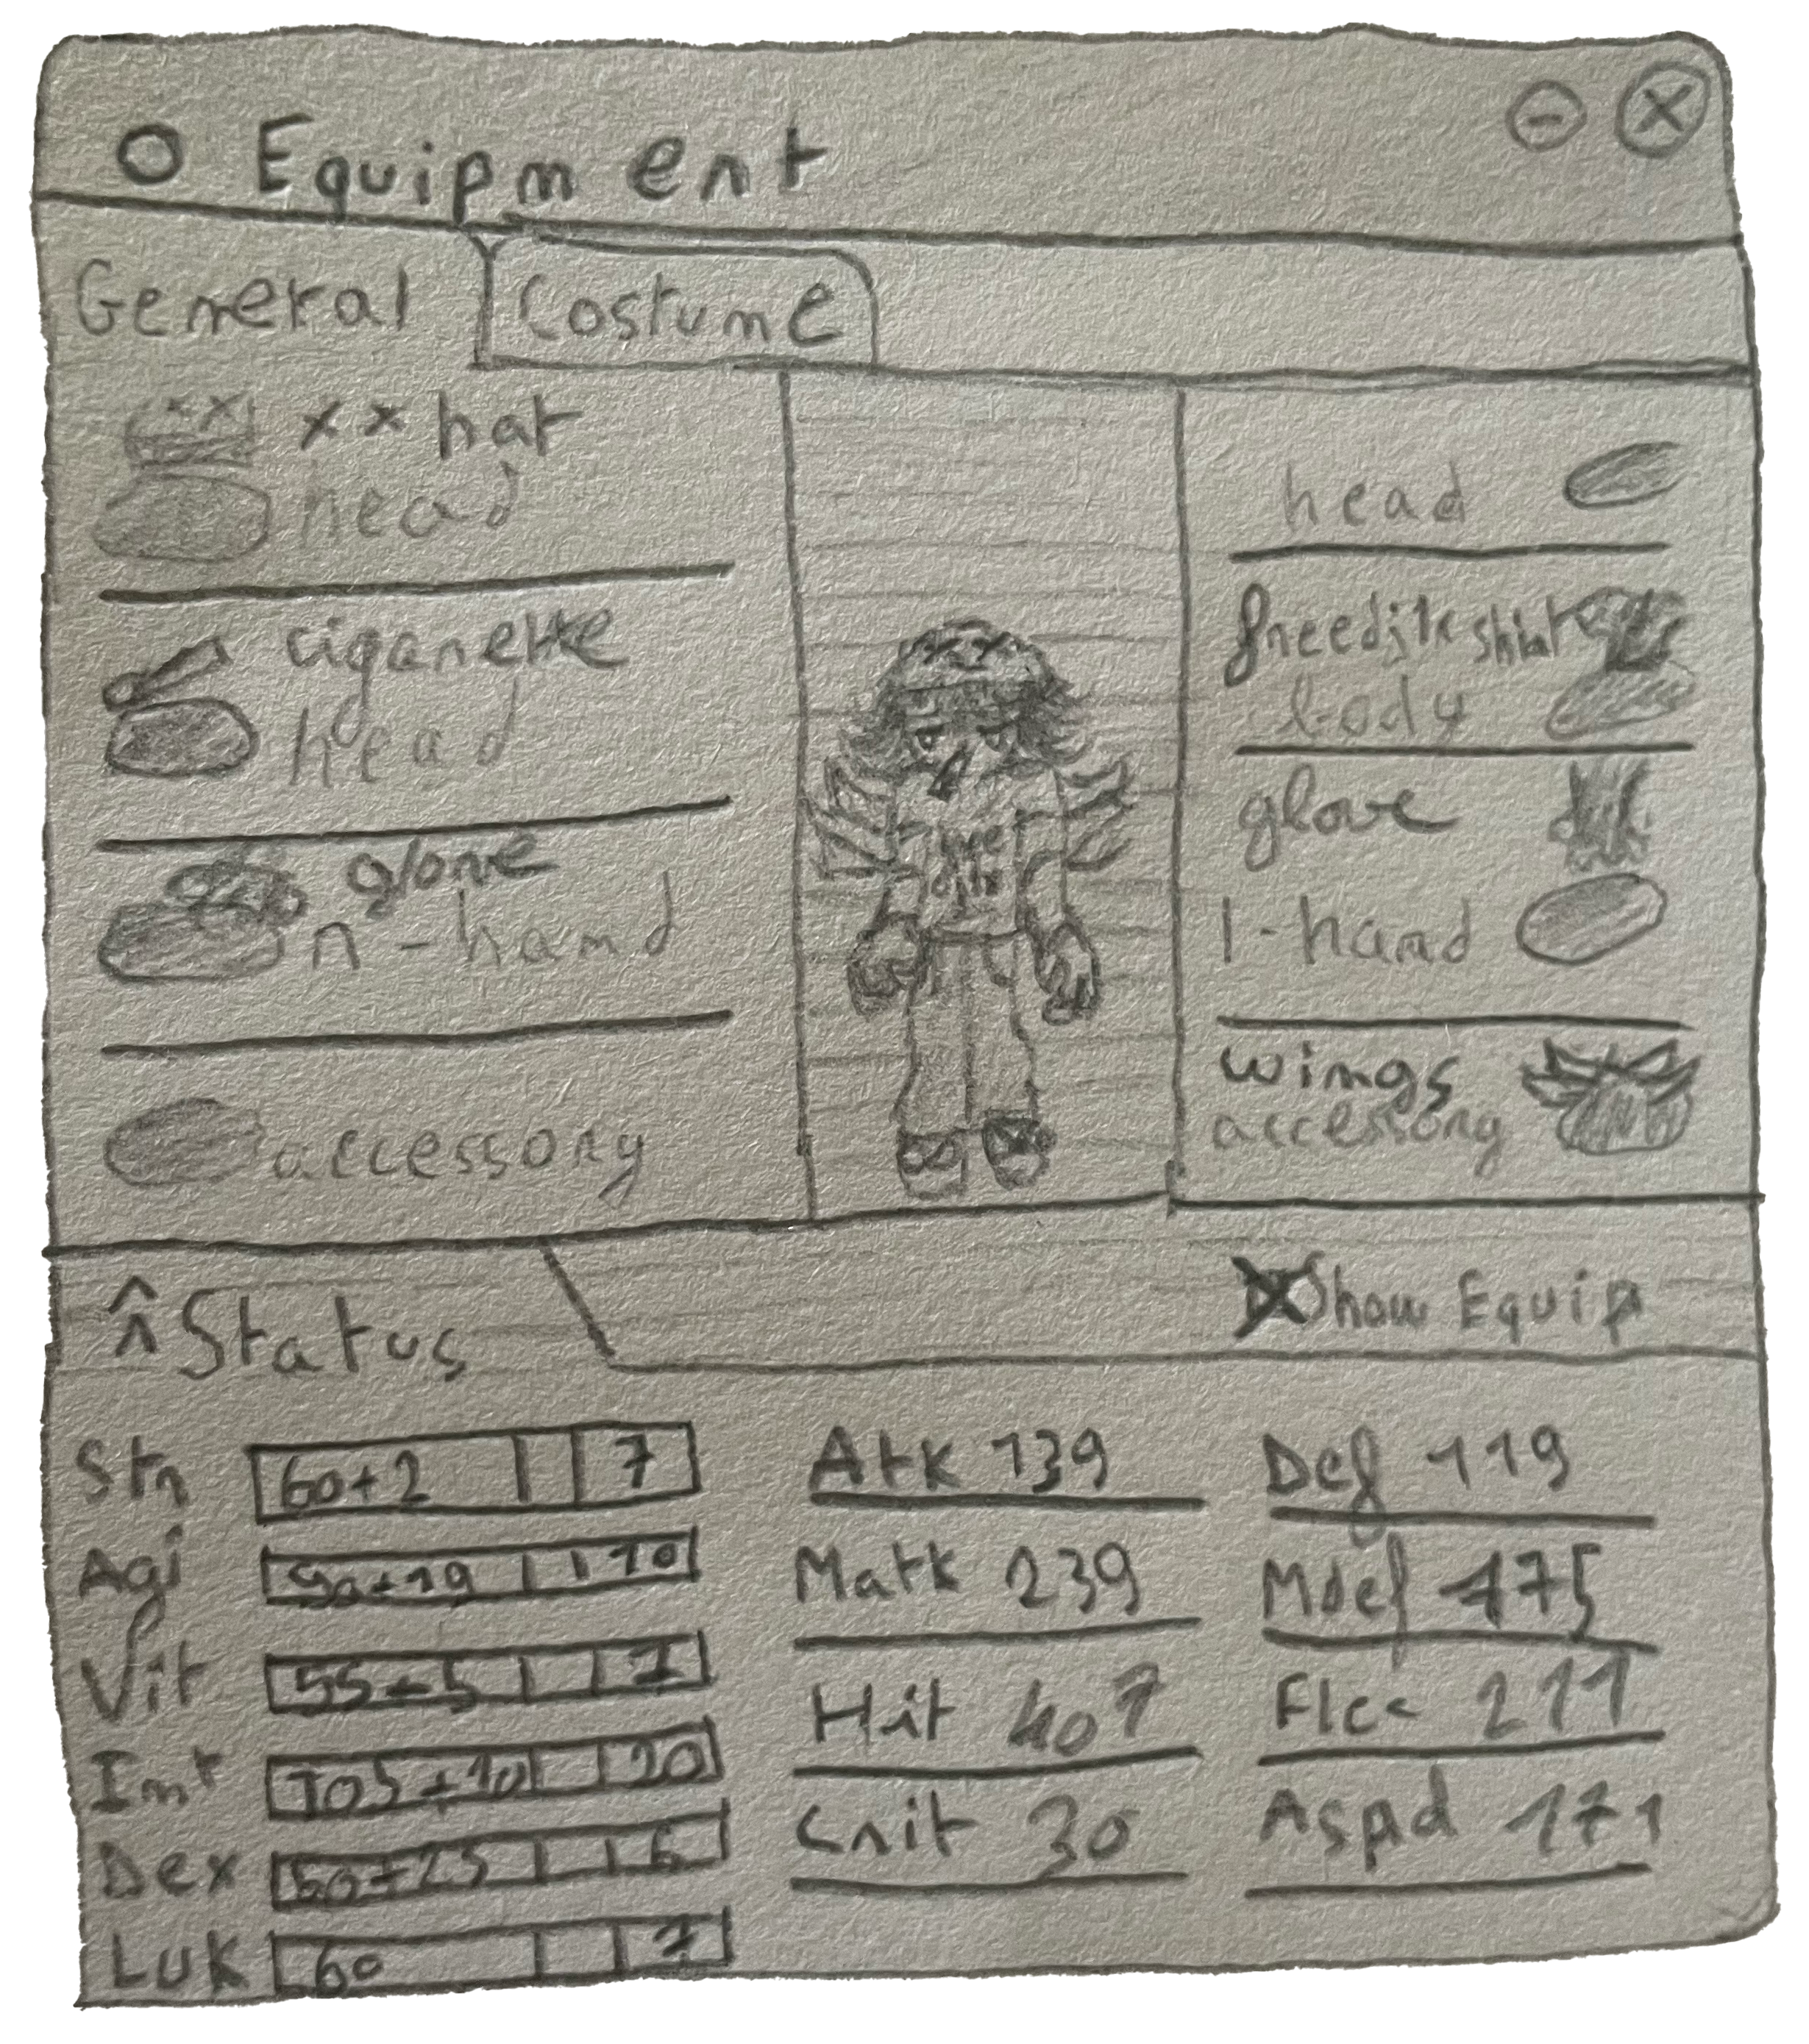 O Equipment
General
Costume
xx hat
head
cigarette
head
glove
r-hand
accessory
head
freedjtk shirt
body
glove
l-hand
wings
accessory
Status
Show Equip
Str 60+2 7
Agi 90+19 10
Vit 55+5 7
Int 105+10 20
Dex 60+25 6
LUK 60 7
Atk 139
Matk 239
Hit 407
Crit 30
Def 119
Mdef 175
Flee 211
Aspd 171